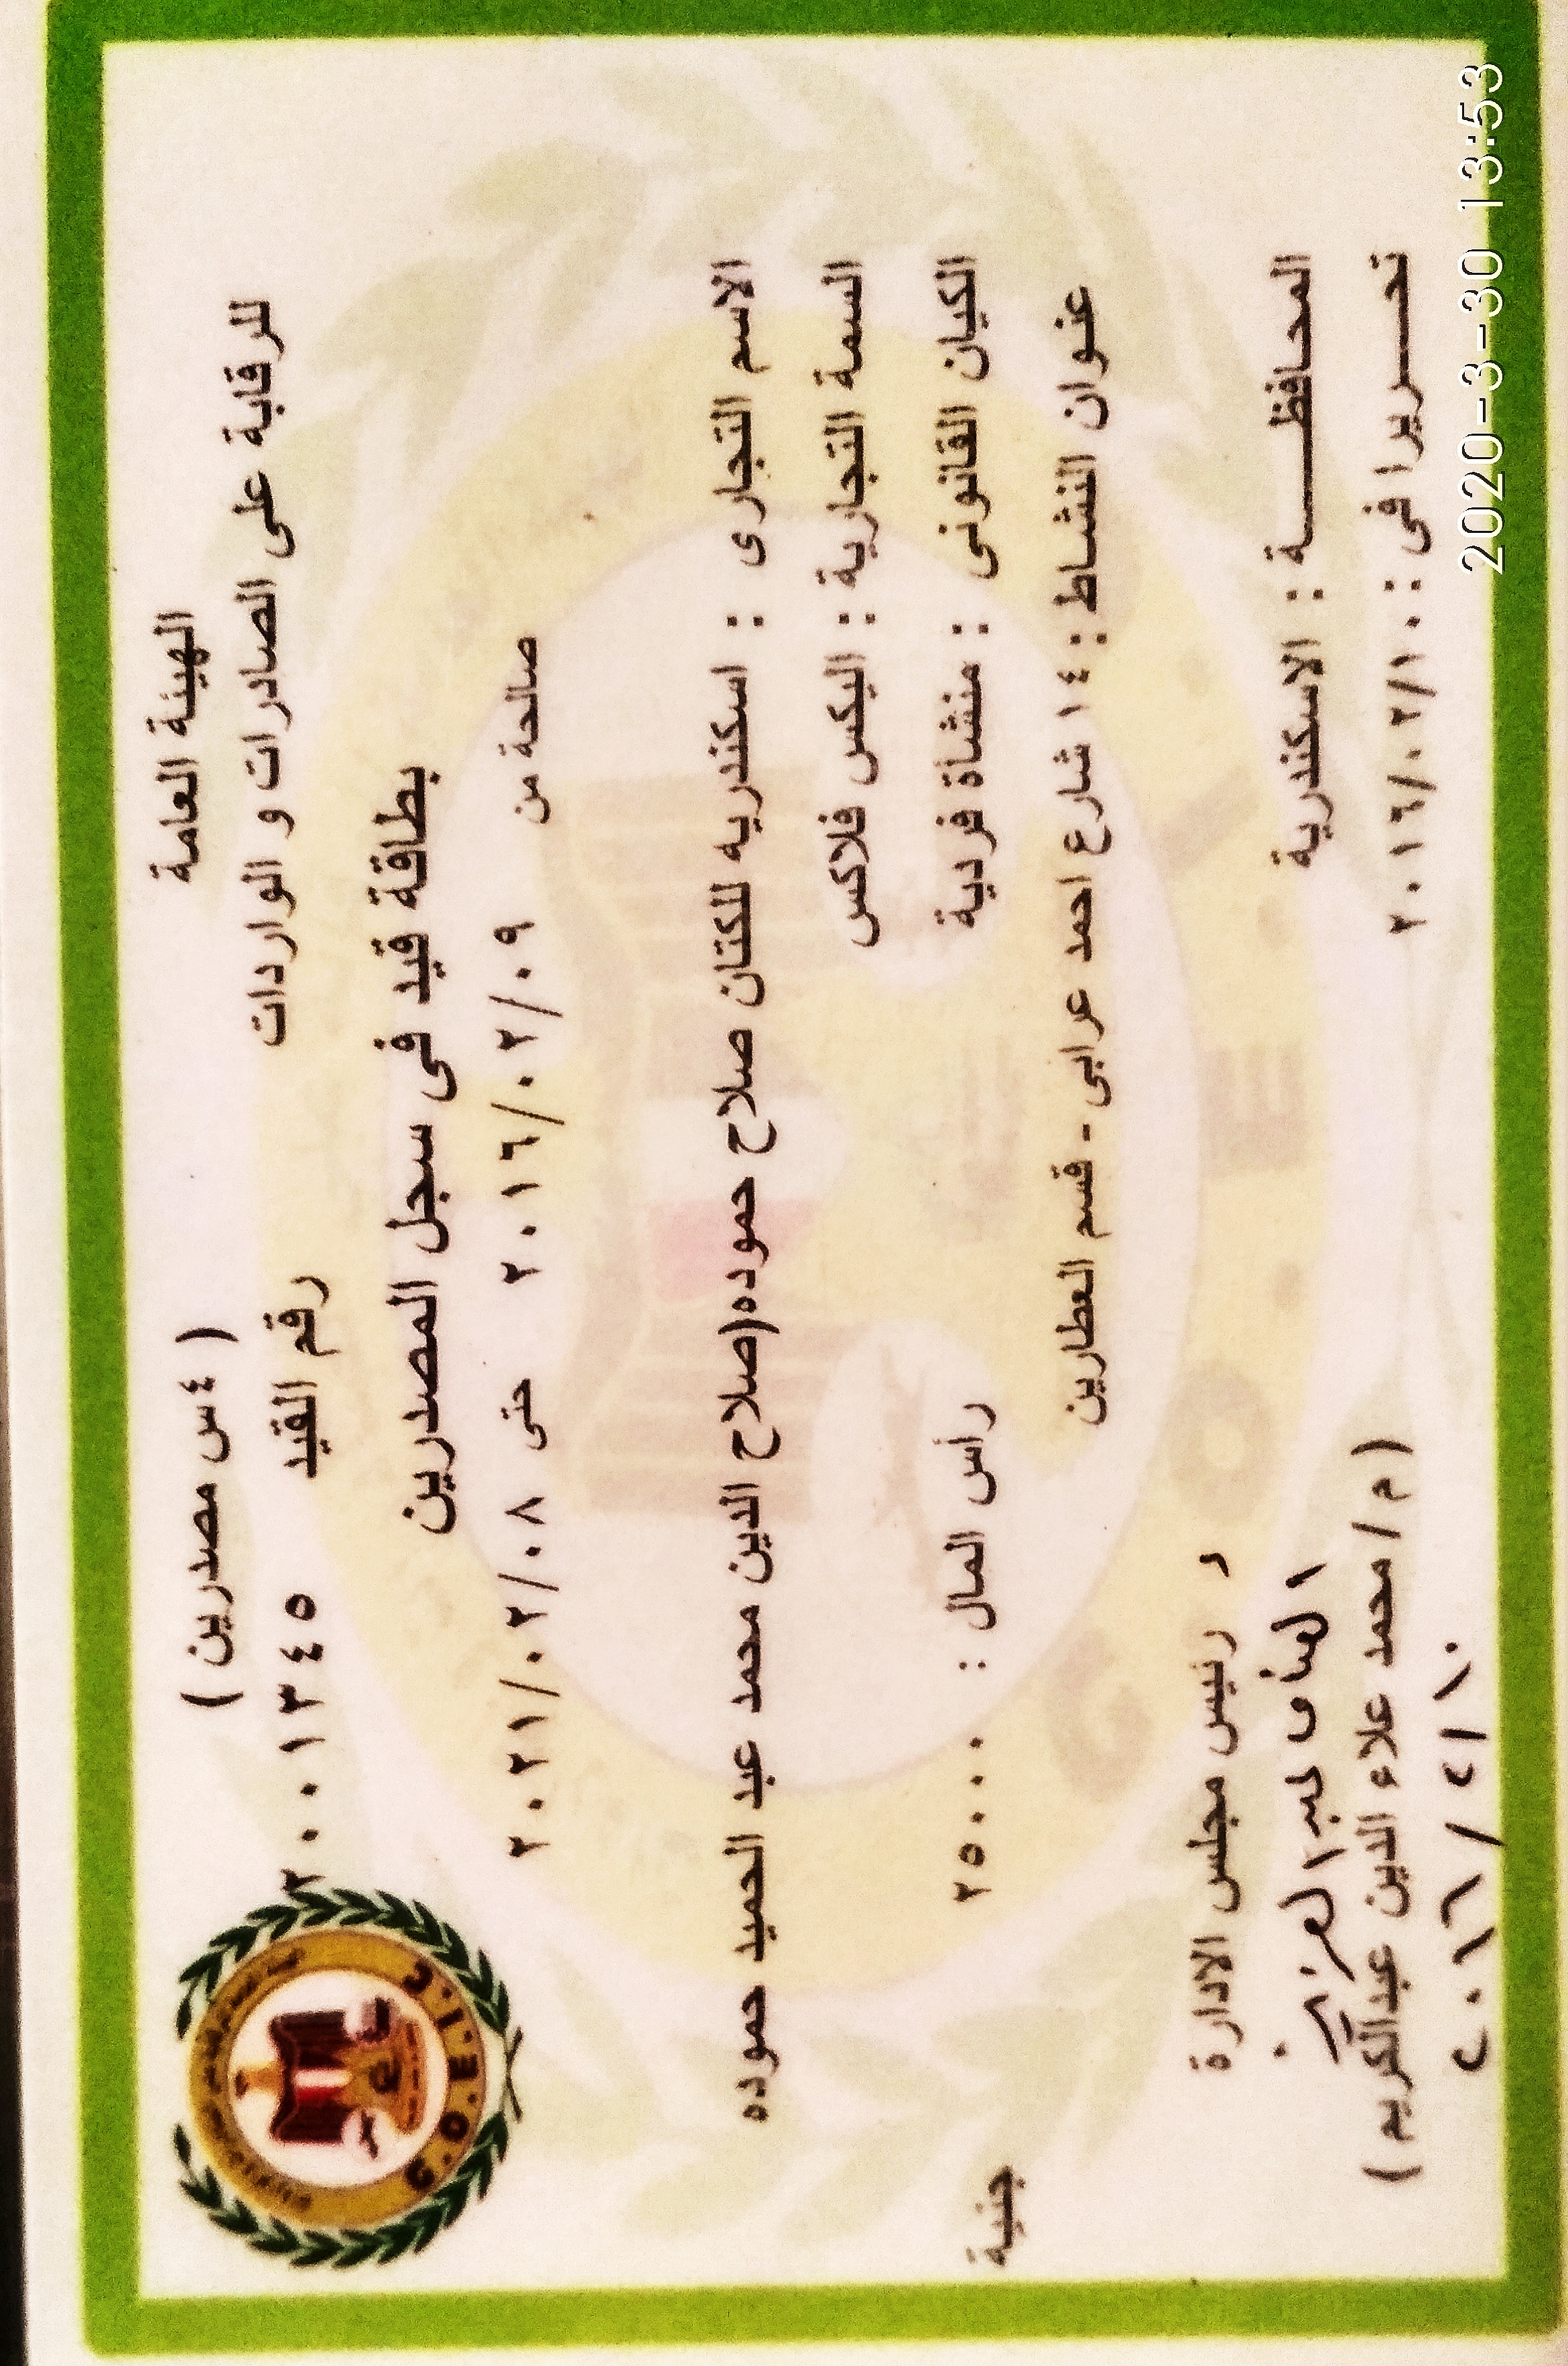 الهيئة العامة
للرقابة على الصادرات و الواردات
( ٤س مصدرين )
رقم القيد ٢٠٠١٣٤٥
بطاقة قيد فى سجل المصدرين
صالحة من ٢٠١٦/٠٢/٠٩ حتى ٢٠٢١/٠٢/٠٨
الاسم التجارى : اسكندريه للكتان صلاح حموده(صلاح الدين محمد عبد الحميد حموده
السمة التجارية : اليكس فلاكس
الكيان القانونى : منشاة فردية رأس المال : ٢٥٠٠٠ جنية
عنوان النشاط : ١٤ شارع احمد عرابى - قسم العطارين
رئيس مجلس الادارة
المحافظـــــة : الاسكندرية
تحـــريرا فى : ٢٠١٦/٠٢/١٠
( م / محمد علاء الدين عبدالكريم )
٢٠١٦ / ٢ / ١٠
G.O.E.I.C
2020-3-30 13:53